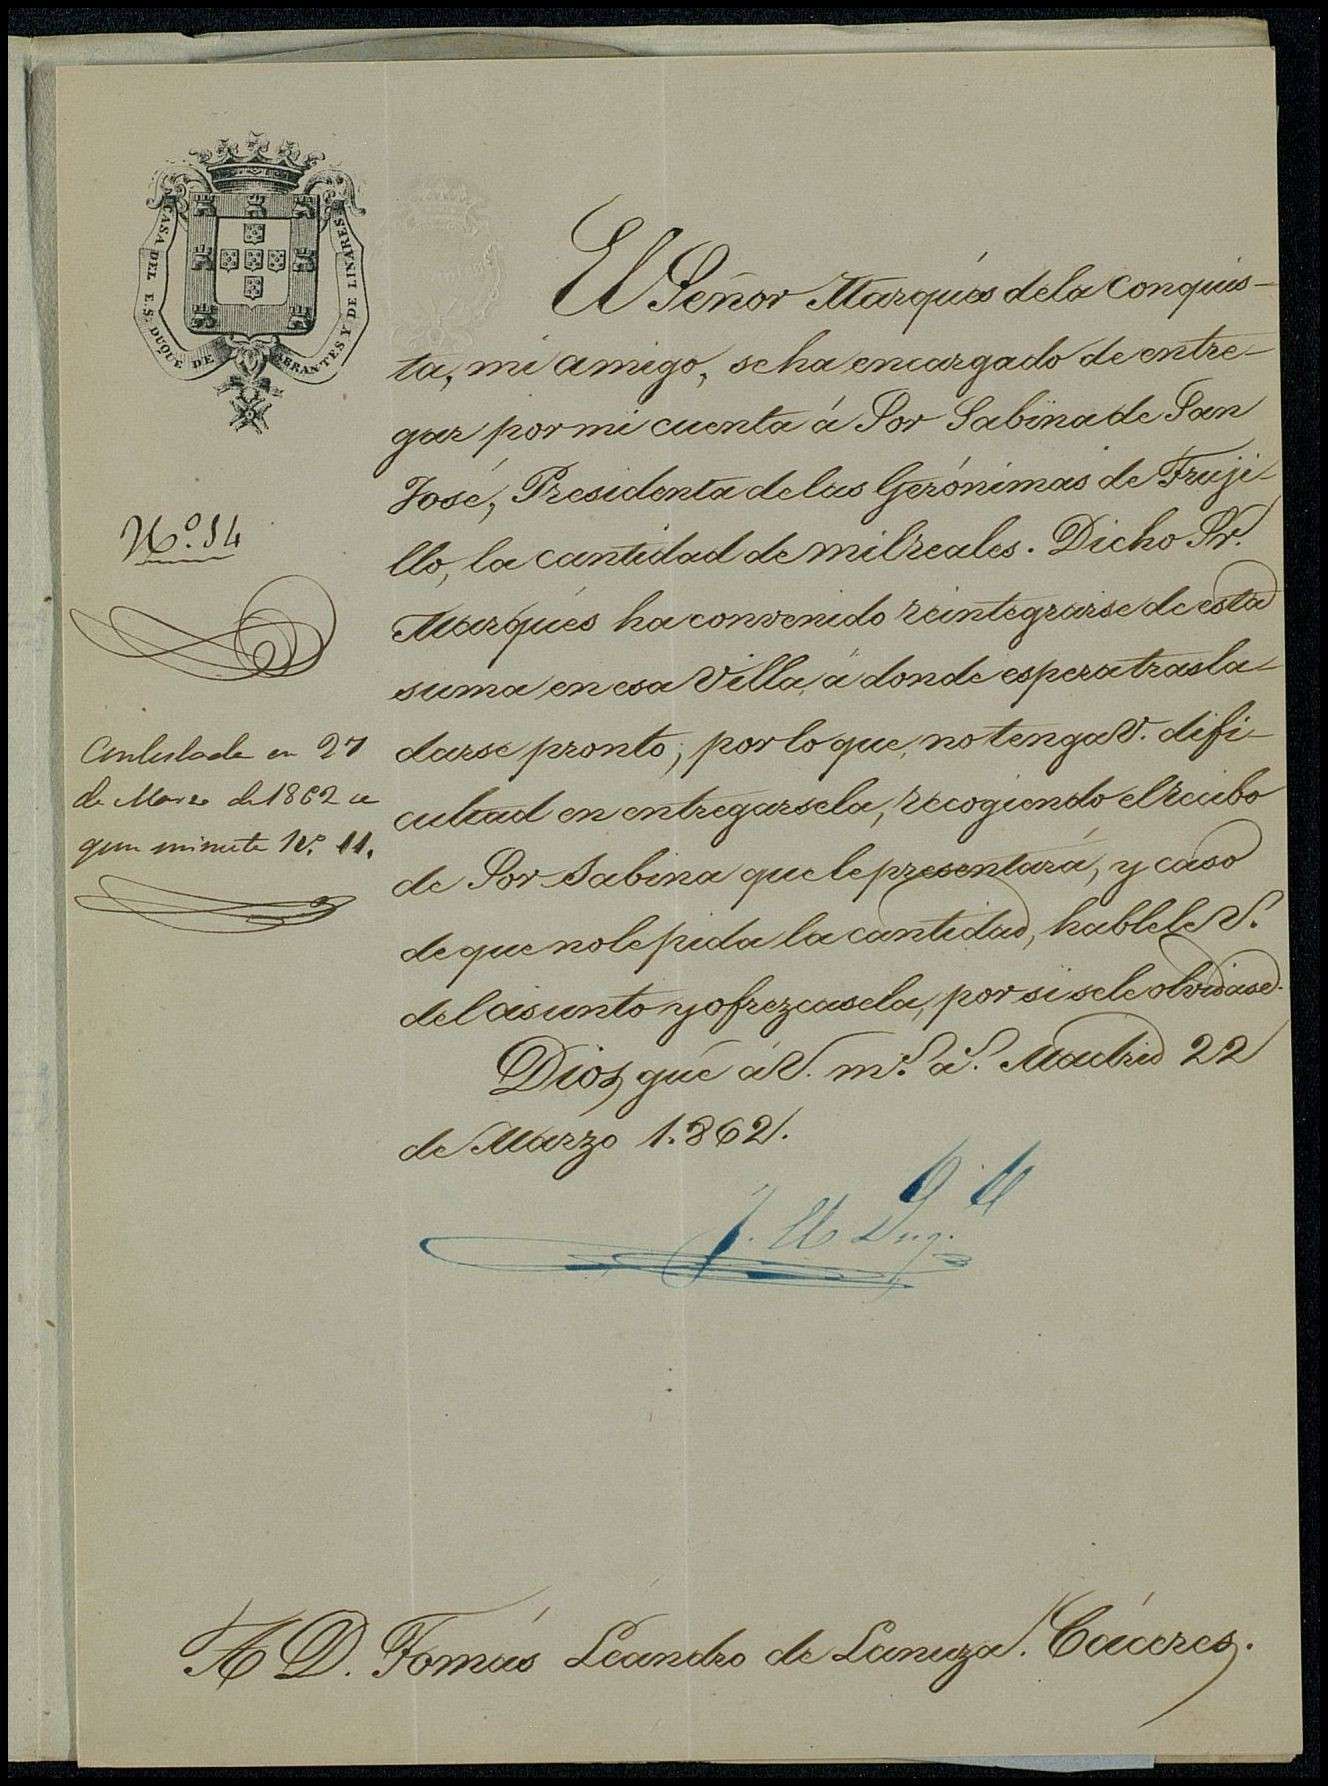 CASA DEL E.S. DUQUE DE ABRANTES Y DE LINARES
El Señor Marqués de la Conquis-
ta, mi amigo, se ha encargado de entre-
gar por mi cuenta á Sor Sabina de San
José, Presidenta de las Gerónimas de Truji-
llo, la cantidad de mil reales. Dicho Sr.
Marqués ha convenido reintegrarse de esta
suma en esa Villa, á donde espera trasla-
darse pronto; por lo que, no tenga V. difi-
cultad en entregarsela, recogiendo el recibo
de Sor Sabina que le presentará, y caso
de que no le pida la cantidad, hablele V.
del asunto y ofrezcasela, por si se le olvidase.
Dios gue á V. ms. as. Madrid 22
de Marzo 1.862.
Nº. 14
Contestada en 27
de Marzo de 1862 se
gun minuta Nº. 11.
A D. Tomás Leandro de Lanuza. Cáceres.